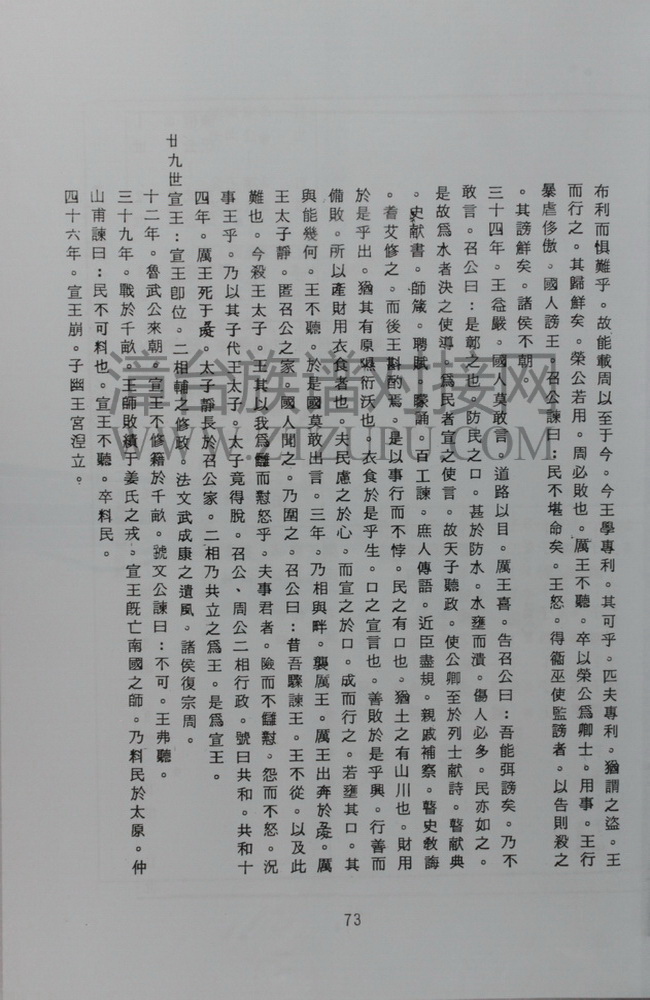 布利而惧難乎。故能載周以至于今。今王學專利。其可乎。匹夫專利。猶謂之盜。王
而行之。其歸鮮矣。榮公若用。周必敗也。厲王不聽。卒以榮公爲卿士。用事。王行
暴虐侈傲。國人謗王。召公諫曰：民不堪命矣。王怒。得衞巫使監謗者。以告則殺之
。其謗鮮矣。諸侯不朝。
三十四年。王益嚴。國人莫敢言。道路以目。厲王喜。告召公曰：吾能弭謗矣。乃不
敢言。召公曰：是鄣之也。防民之口。甚於防水。水壅而潰。傷人必多。民亦如之。
是故爲水者決之使導。爲民者宣之使言。故天子聽政。使公卿至於列士献詩。瞽献典
。史献書。師箴。聘賦。矇誦。百工諫。庶人傳語。近臣盡規。親戚補察。瞽史敎誨
。耆艾修之。而後王斟酌焉。是以事行而不悖。民之有口也。猶土之有山川也。財用
於是乎出。猶其有原隰衍沃也。衣食於是乎生。口之宣言也。善敗於是乎興。行善而
備敗。所以產財用衣食者也。夫民慮之於心。而宣之於口。成而行之。若壅其口。其
與能幾何。王不聽。於是國莫敢出言。三年。乃相與畔。襲厲王。厲王出奔於彘。厲
王太子靜。匿召公之家。國人聞之。乃圍之。召公曰：昔吾驟諫王。王不從。以及此
難也。今殺王太子。王其以我爲讎而懟怒乎。夫事君者。險而不讎懟。怨而不怒。況
事王乎。乃以其子代王太子。太子竟得脫。召公、周公二相行政。號曰共和。共和十
四年。厲王死于彘。太子靜長於召公家。二相乃共立之爲王。是爲宣王。
廿九世宣王：宣王卽位。二相輔之修政。法文武成康之遺風。諸侯復宗周。
十二年。魯武公來朝。宣王不修籍於千畝。號文公諫曰：不可。王弗聽。
三十九年。戰於千畝。王師敗績于姜氏之戎。宣王旣亡南國之師。乃料民於太原。仲
山甫諫曰：民不可料也。宣王不聽。卒料民。
四十六年。宣王崩。子幽王宮湼立。
73
漳台族谱对接网
WWW.ZTZUPU.COM